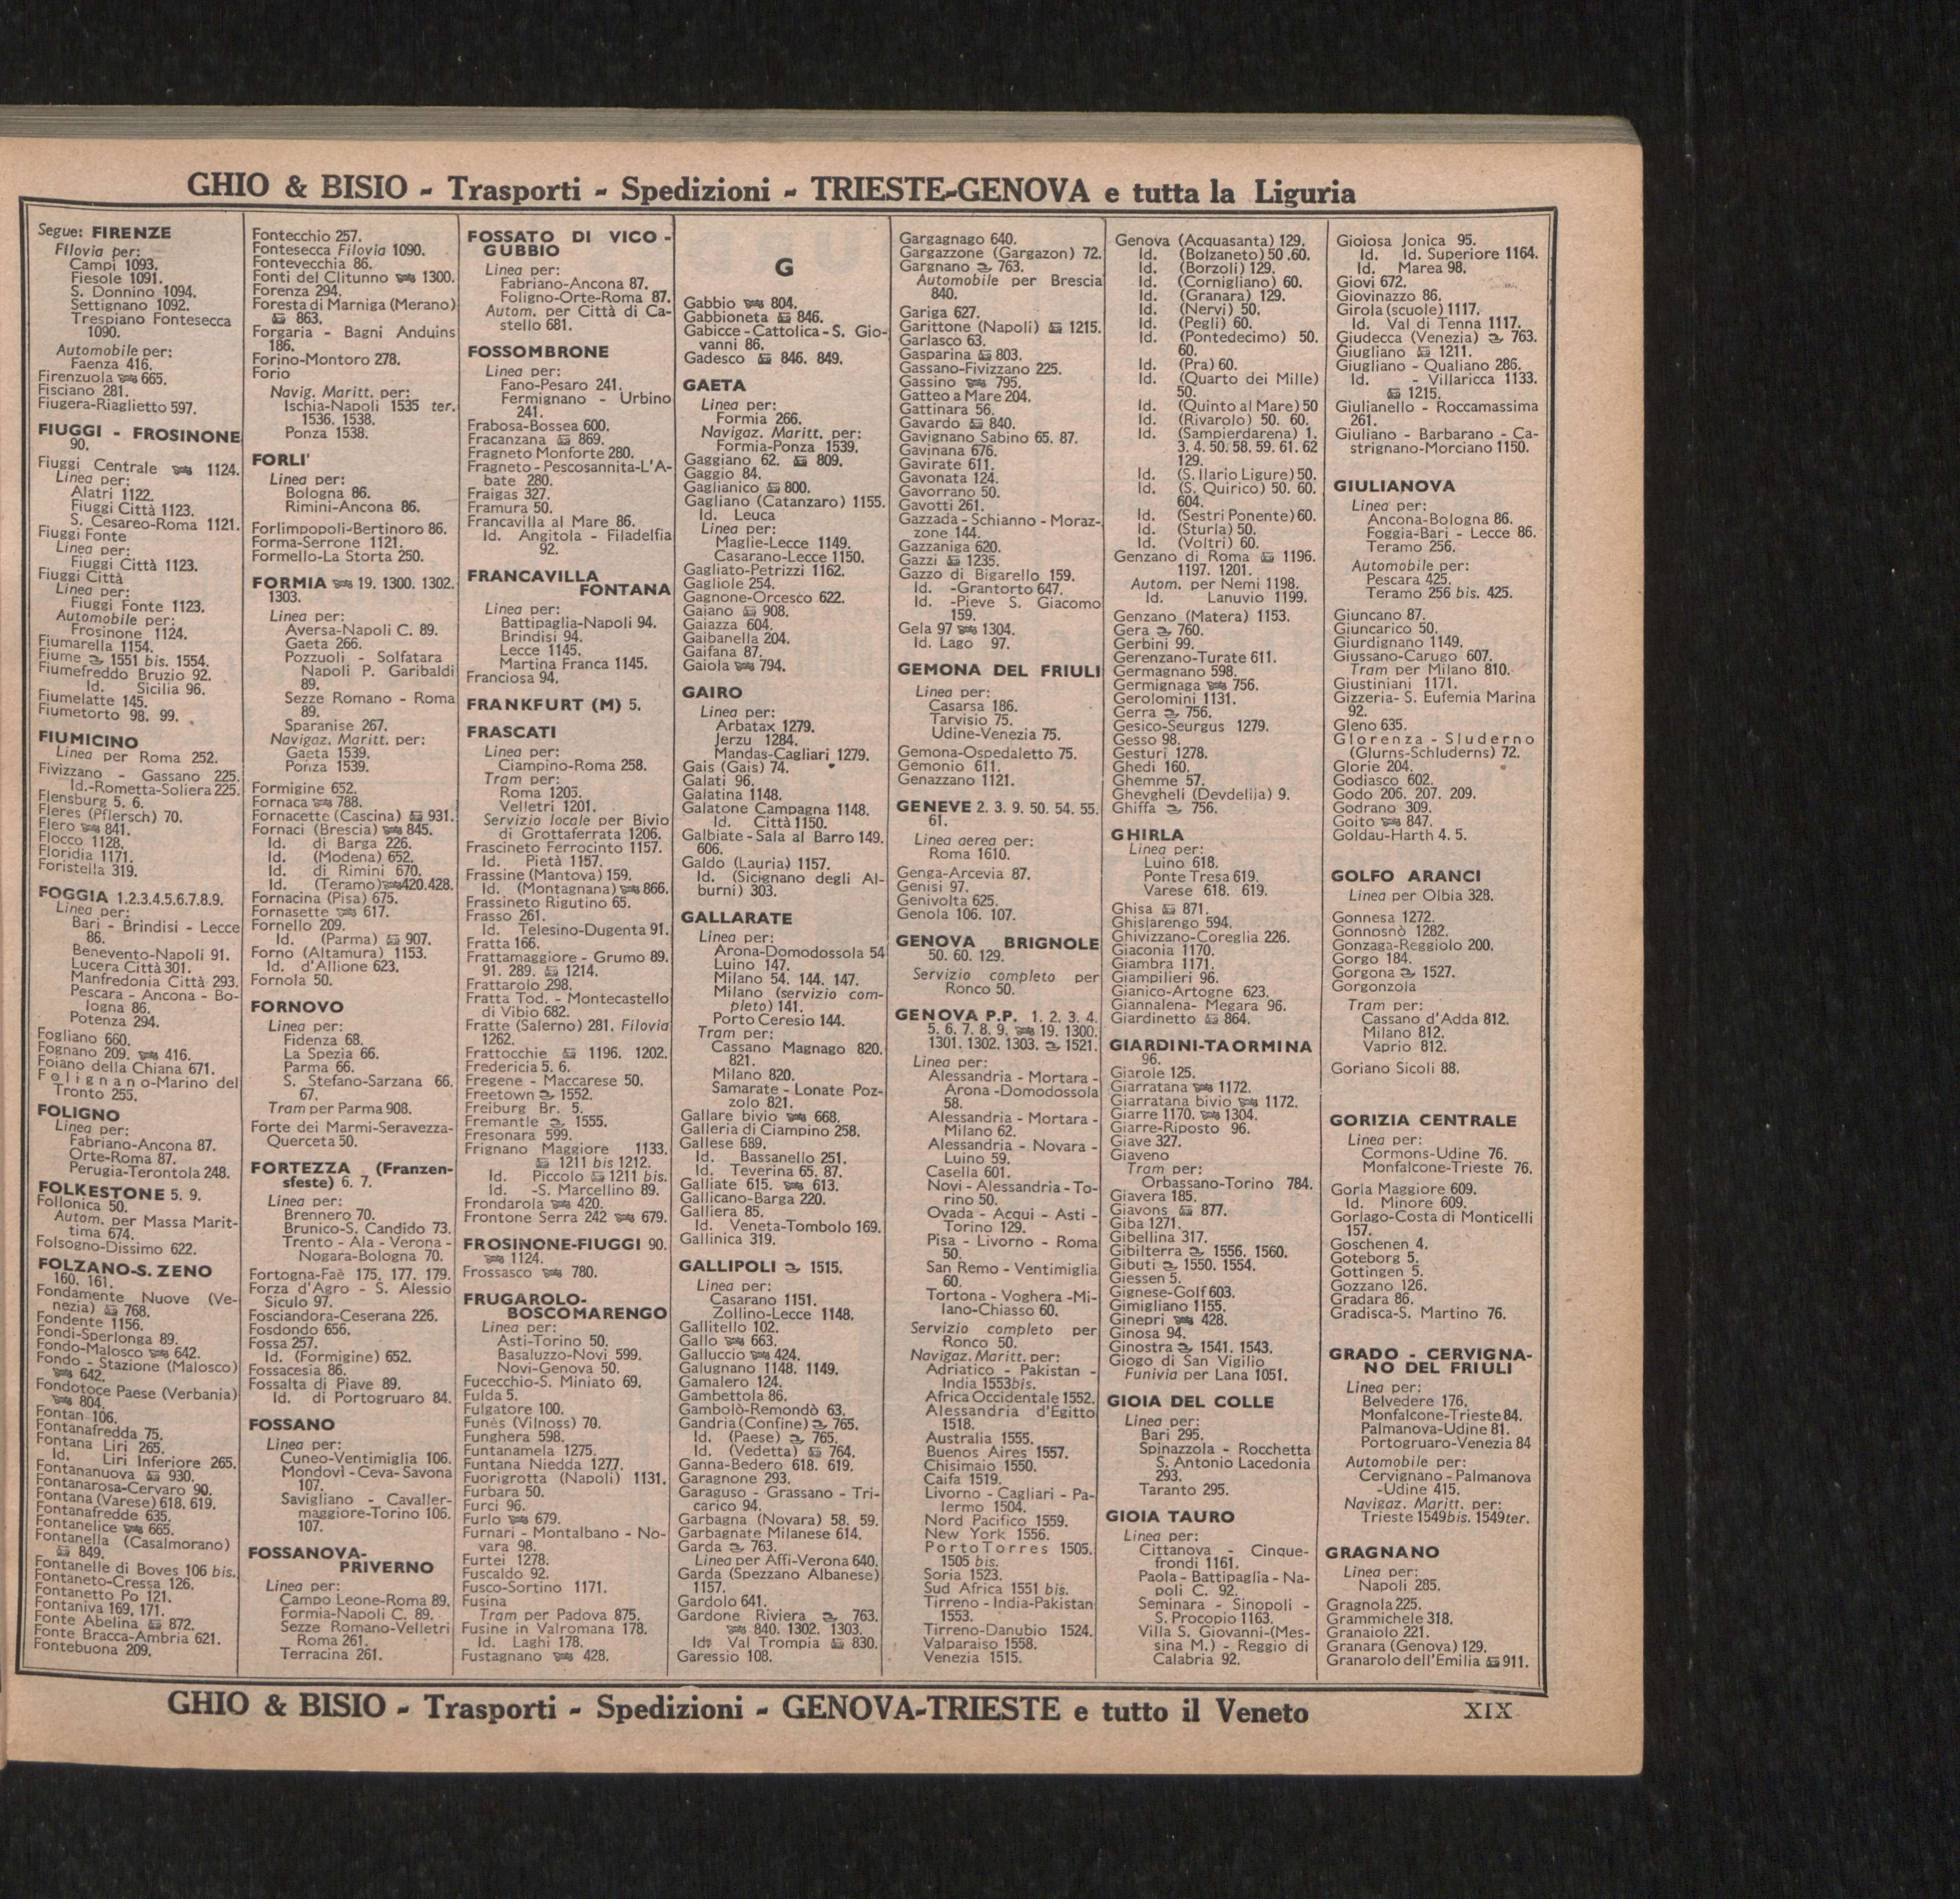 GHIO & BISIO - Trasporti - Spedizioni - TRIESTE-GENOVA e tutta la Liguria
Segue: FIRENZE
Filovia per:
Campi 1093.
Fiesole 1091.
S. Donnino 1094.
Settignano 1092.
Trespiano Fontesecca
1090.
Automobile per:
Faenza 416.
Firenzuola 665.
Fisciano 281.
Fiugera-Riaglietto 597.
FIUGGI - FROSINONE
90.
Fiuggi Centrale 1124.
Linea per:
Alatri 1122.
Fiuggi Città 1123.
S. Cesareo-Roma 1121.
Fiuggi Fonte
Linea per:
Fiuggi Città 1123.
Fiuggi Città
Linea per:
Fiuggi Fonte 1123.
Automobile per:
Frosinone 1124.
Fiumarella 1154.
Fiume 1551 bis. 1554.
Fiumefreddo Bruzio 92.
Id. Sicilia 96.
Fiumelatte 145.
Fiumetorto 98. 99.
FIUMICINO
Linea per Roma 252.
Fivizzano - Gassano 225.
Id.-Rometta-Soliera 225.
Flensburg 5. 6.
Fleres (Pflersch) 70.
Flero 841.
Flocco 1128.
Floridia 1171.
Foristella 319.
FOGGIA 1.2.3.4.5.6.7.8.9.
Linea per:
Bari - Brindisi - Lecce
86.
Benevento-Napoli 91.
Lucera Città 301.
Manfredonia Città 293.
Pescara - Ancona - Bo-
logna 86.
Potenza 294.
Fogliano 660.
Fognano 209. 416.
Foiano della Chiana 671.
Folignano-Marino del
Tronto 255.
FOLIGNO
Linea per:
Fabriano-Ancona 87.
Orte-Roma 87.
Perugia-Terontola 248.
FOLKESTONE 5. 9.
Follonica 50.
Autom. per Massa Marit-
tima 674.
Folsogno-Dissimo 622.
FOLZANO-S. ZENO
160. 161.
Fondamente Nuove (Ve-
nezia) 768.
Fondente 1156.
Fondi-Sperlonga 89.
Fondo-Malosco 642.
Fondo - Stazione (Malosco)
642.
Fondotoce Paese (Verbania)
804.
Fontan 106.
Fontanafredda 75.
Fontana Liri 265.
Id. Liri Inferiore 265.
Fontananuova 930.
Fontanarosa-Cervaro 90.
Fontana (Varese) 618. 619.
Fontanafredde 635.
Fontanelice 665.
Fontanella (Casalmorano)
849.
Fontanelle di Boves 106 bis.
Fontaneto-Cressa 126.
Fontanetto Po 121.
Fontaniva 169. 171.
Fonte Abelina 872.
Fonte Bracca-Ambria 621.
Fontebuona 209.
Fontecchio 257.
Fontesecca Filovia 1090.
Fontevecchia 86.
Fonti del Clitunno 1300.
Forenza 294.
Foresta di Marniga (Merano)
863.
Forgaria - Bagni Anduins
186.
Forino-Montoro 278.
Forio
Navig. Maritt. per:
Ischia-Napoli 1535 ter.
1536. 1538.
Ponza 1538.
FORLI'
Linea per:
Bologna 86.
Rimini-Ancona 86.
Forlimpopoli-Bertinoro 86.
Forma-Serrone 1121.
Formello-La Storta 250.
FORMIA 19. 1300. 1302.
1303.
Linea per:
Aversa-Napoli C. 89.
Gaeta 266.
Pozzuoli - Solfatara
Napoli P. Garibaldi
89.
Sezze Romano - Roma
89.
Sparanise 267.
Navigaz. Maritt. per:
Gaeta 1539.
Ponza 1539.
Formigine 652.
Fornaca 788.
Fornacette (Cascina) 931.
Fornaci (Brescia) 845.
Id. di Barga 226.
Id. (Modena) 652.
Id. di Rimini 670.
Id. (Teramo) 420.428.
Fornacina (Pisa) 675.
Fornasette 617.
Fornello 209.
Id. (Parma) 907.
Forno (Altamura) 1153.
Id. d'Allione 623.
Fornola 50.
FORNOVO
Linea per:
Fidenza 68.
La Spezia 66.
Parma 66.
S. Stefano-Sarzana 66.
67.
Tram per Parma 908.
Forte dei Marmi-Seravezza-
Querceta 50.
FORTEZZA (Franzen-
sfeste) 6. 7.
Linea per:
Brennero 70.
Brunico-S. Candido 73.
Trento - Ala - Verona -
Nogara-Bologna 70.
Fortogna-Faè 175. 177. 179.
Forza d'Agro - S. Alessio
Siculo 97.
Fosciandora-Ceserana 226.
Fosdondo 656.
Fossa 257.
Id. (Formigine) 652.
Fossacesia 86.
Fossalta di Piave 89.
Id. di Portogruaro 84.
FOSSANO
Linea per:
Cuneo-Ventimiglia 106.
Mondovì - Ceva- Savona
107.
Savigliano - Cavaller-
maggiore-Torino 106.
107.
FOSSANOVA-
PRIVERNO
Linea per:
Campo Leone-Roma 89.
Formia-Napoli C. 89.
Sezze Romano-Velletri
Roma 261.
Terracina 261.
FOSSATO DI VICO -
GUBBIO
Linea per:
Fabriano-Ancona 87.
Foligno-Orte-Roma 87.
Autom. per Città di Ca-
stello 681.
FOSSOMBRONE
Linea per:
Fano-Pesaro 241.
Fermignano - Urbino
241.
Frabosa-Bossea 600.
Fracanzana 869.
Fragneto Monforte 280.
Fragneto - Pescosannita-L'A-
bate 280.
Fraigas 327.
Framura 50.
Francavilla al Mare 86.
Id. Angitola - Filadelfia
92.
FRANCAVILLA
FONTANA
Linea per:
Battipaglia-Napoli 94.
Brindisi 94.
Lecce 1145.
Martina Franca 1145.
Franciosa 94.
FRANKFURT (M) 5.
FRASCATI
Linea per:
Ciampino-Roma 258.
Tram per:
Roma 1205.
Velletri 1201.
Servizio locale per Bivio
di Grottaferrata 1206.
Frascineto Ferrocinto 1157.
Id. Pietà 1157.
Frassine (Mantova) 159.
Id. (Montagnana) 866.
Frassineto Rigutino 65.
Frasso 261.
Id. Telesino-Dugenta 91.
Fratta 166.
Frattamaggiore - Grumo 89.
91. 289. 1214.
Frattarolo 298.
Fratta Tod. - Montecastello
di Vibio 682.
Fratte (Salerno) 281. Filovia
1262.
Frattocchie 1196. 1202.
Fredericia 5. 6.
Fregene - Maccarese 50.
Freetown 1552.
Freiburg Br. 5.
Fremantle 1555.
Fresonara 599.
Frignano Maggiore 1133.
1211 bis 1212.
Id. Piccolo 1211 bis.
Id. -S. Marcellino 89.
Frondarola 420.
Frontone Serra 242 679.
FROSINONE-FIUGGI 90.
1124.
Frossasco 780.
FRUGAROLO-
BOSCOMARENGO
Linea per:
Asti-Torino 50.
Basaluzzo-Novi 599.
Novi-Genova 50.
Fucecchio-S. Miniato 69.
Fulda 5.
Fulgatore 100.
Funès (Vilnoss) 70.
Funghera 598.
Funtanamela 1275.
Funtana Niedda 1277.
Fuorigrotta (Napoli) 1131.
Furbara 50.
Furci 96.
Furlo 679.
Furnari - Montalbano - No-
vara 98.
Furtei 1278.
Fuscaldo 92.
Fusco-Sortino 1171.
Fusina
Tram per Padova 875.
Fusine in Valromana 178.
Id. Laghi 178.
Fustagnano 428.
G
Gabbio 804.
Gabbioneta 846.
Gabicce - Cattolica - S. Gio-
vanni 86.
Gadesco 846. 849.
GAETA
Linea per:
Formia 266.
Navigaz. Maritt. per:
Formia-Ponza 1539.
Gaggiano 62. 809.
Gaggio 84.
Gaglianico 800.
Gagliano (Catanzaro) 1155.
Id. Leuca
Linea per:
Maglie-Lecce 1149.
Casarano-Lecce 1150.
Gagliato-Petrizzi 1162.
Gagliole 254.
Gagnone-Orcesco 622.
Gaiano 908.
Gaiazza 604.
Gaibanella 204.
Gaifana 87.
Gaiola 794.
GAIRO
Linea per:
Arbatax 1279.
Jerzu 1284.
Mandas-Cagliari 1279.
Gais (Gais) 74.
Galati 96.
Galatina 1148.
Galatone Campagna 1148.
Id. Città 1150.
Galbiate - Sala al Barro 149.
606.
Galdo (Lauria) 1157.
Id. (Sicignano degli Al-
burni) 303.
GALLARATE
Linea per:
Arona-Domodossola 54
Luino 147.
Milano 54. 144. 147.
Milano (servizio com-
pleto) 141.
Porto Ceresio 144.
Tram per:
Cassano Magnago 820.
821.
Milano 820.
Samarate - Lonate Poz-
zolo 821.
Gallare bivio 668.
Galleria di Ciampino 258.
Gallese 689.
Id. Bassanello 251.
Id. Teverina 65. 87.
Galliate 615. 613.
Gallicano-Barga 220.
Galliera 85.
Id. Veneta-Tombolo 169.
Gallinica 319.
GALLIPOLI 1515.
Linea per:
Casarano 1151.
Zollino-Lecce 1148.
Gallitello 102.
Gallo 663.
Galluccio 424.
Galugnano 1148. 1149.
Gamalero 124.
Gambettola 86.
Gambolò-Remondò 63.
Gandria (Confine) 765.
Id. (Paese) 765.
Id. (Vedetta) 764.
Ganna-Bedero 618. 619.
Garagnone 293.
Garaguso - Grassano - Tri-
carico 94.
Garbagna (Novara) 58. 59.
Garbagnate Milanese 614.
Garda 763.
Linea per Affi-Verona 640.
Garda (Spezzano Albanese)
1157.
Gardolo 641.
Gardone Riviera 763.
840. 1302. 1303.
Id. Val Trompia 830.
Garessio 108.
Gargagnago 640.
Gargazzone (Gargazon) 72.
Gargnano 763.
Automobile per Brescia
840.
Gariga 627.
Garittone (Napoli) 1215.
Garlasco 63.
Gasparina 803.
Gassano-Fivizzano 225.
Gassino 795.
Gatteo a Mare 204.
Gattinara 56.
Gavardo 840.
Gavignano Sabino 65. 87.
Gavinana 676.
Gavirate 611.
Gavonata 124.
Gavorrano 50.
Gavotti 261.
Gazzada - Schianno - Moraz-
zone 144.
Gazzaniga 620.
Gazzi 1235.
Gazzo di Bigarello 159.
Id. -Grantorto 647.
Id. -Pieve S. Giacomo
159.
Gela 97 1304.
Id. Lago 97.
GEMONA DEL FRIULI
Linea per:
Casarsa 186.
Tarvisio 75.
Udine-Venezia 75.
Gemona-Ospedaletto 75.
Gemonio 611.
Genazzano 1121.
GENEVE 2. 3. 9. 50. 54. 55.
61.
Linea aerea per:
Roma 1610.
Genga-Arcevia 87.
Genisi 97.
Genivolta 625.
Genola 106. 107.
GENOVA BRIGNOLE
50. 60. 129.
Servizio completo per
Ronco 50.
GENOVA P.P. 1. 2. 3. 4.
5. 6. 7. 8. 9. 19. 1300.
1301. 1302. 1303. 1521.
Linea per:
Alessandria - Mortara -
Arona -Domodossola
58.
Alessandria - Mortara -
Milano 62.
Alessandria - Novara -
Luino 59.
Casella 601.
Novi - Alessandria - To-
rino 50.
Ovada - Acqui - Asti -
Torino 129.
Pisa - Livorno - Roma
50.
San Remo - Ventimiglia
60.
Tortona - Voghera -Mi-
lano-Chiasso 60.
Servizio completo per
Ronco 50.
Navigaz. Maritt. per:
Adriatico - Pakistan -
India 1553bis.
Africa Occidentale 1552.
Alessandria d'Egitto
1518.
Australia 1555.
Buenos Aires 1557.
Chisimaio 1550.
Caifa 1519.
Livorno - Cagliari - Pa-
lermo 1504.
Nord Pacifico 1559.
New York 1556.
Porto Torres 1505.
1505 bis.
Soria 1523.
Sud Africa 1551 bis.
Tirreno - India-Pakistan
1553.
Tirreno-Danubio 1524.
Valparaiso 1558.
Venezia 1515.
Genova (Acquasanta) 129.
Id. (Bolzaneto) 50 .60.
Id. (Borzoli) 129.
Id. (Cornigliano) 60.
Id. (Granara) 129.
Id. (Nervi) 50.
Id. (Pegli) 60.
Id. (Pontedecimo) 50.
60.
Id. (Pra) 60.
Id. (Quarto dei Mille)
50.
Id. (Quinto al Mare) 50
Id. (Rivarolo) 50. 60.
Id. (Sampierdarena) 1.
3. 4. 50. 58. 59. 61. 62
129.
Id. (S. Ilario Ligure) 50.
Id. (S. Quirico) 50. 60.
604.
Id. (Sestri Ponente) 60.
Id. (Sturla) 50.
Id. (Voltri) 60.
Genzano di Roma 1196.
1197. 1201.
Autom. per Nemi 1198.
Id. Lanuvio 1199.
Genzano (Matera) 1153.
Gera 760.
Gerbini 99.
Gerenzano-Turate 611.
Germagnano 598.
Germignaga 756.
Gerolomini 1131.
Gerra 756.
Gesico-Seurgus 1279.
Gesso 98.
Gesturi 1278.
Ghedi 160.
Ghemme 57.
Ghevgheli (Devdelija) 9.
Ghiffa 756.
GHIRLA
Linea per:
Luino 618.
Ponte Tresa 619.
Varese 618. 619.
Ghisa 871.
Ghislarengo 594.
Ghivizzano-Coreglia 226.
Giaconia 1170.
Giambra 1171.
Giampilieri 96.
Gianico-Artogne 623.
Giannalena- Megara 96.
Giardinetto 864.
GIARDINI-TAORMINA
96.
Giarole 125.
Giarratana 1172.
Giarratana bivio 1172.
Giarre 1170. 1304.
Giarre-Riposto 96.
Giave 327.
Giaveno
Tram per:
Orbassano-Torino 784.
Giavera 185.
Giavons 877.
Giba 1271.
Gibellina 317.
Gibilterra 1556. 1560.
Gibuti 1550. 1554.
Giessen 5.
Gignese-Golf 603.
Gimigliano 1155.
Ginepri 428.
Ginosa 94.
Ginostra 1541. 1543.
Giogo di San Vigilio
Funivia per Lana 1051.
GIOIA DEL COLLE
Linea per:
Bari 295.
Spinazzola - Rocchetta
S. Antonio Lacedonia
293.
Taranto 295.
GIOIA TAURO
Linea per:
Cittanova - Cinque-
frondi 1161.
Paola - Battipaglia - Na-
poli C. 92.
Seminara - Sinopoli -
S. Procopio 1163.
Villa S. Giovanni-(Mes-
sina M.) - Reggio di
Calabria 92.
Gioiosa Jonica 95.
Id. Id. Superiore 1164.
Id. Marea 98.
Giovi 672.
Giovinazzo 86.
Girola (scuole) 1117.
Id. Val di Tenna 1117.
Giudecca (Venezia) 763.
Giugliano 1211.
Giugliano - Qualiano 286.
Id. - Villaricca 1133.
1215.
Giulianello - Roccamassima
261.
Giuliano - Barbarano - Ca-
strignano-Morciano 1150.
GIULIANOVA
Linea per:
Ancona-Bologna 86.
Foggia-Bari - Lecce 86.
Teramo 256.
Automobile per:
Pescara 425.
Teramo 256 bis. 425.
Giuncano 87.
Giuncarico 50.
Giurdignano 1149.
Giussano-Carugo 607.
Tram per Milano 810.
Giustiniani 1171.
Gizzeria- S. Eufemia Marina
92.
Gleno 635.
Glorenza - Sluderno
(Glurns-Schluderns) 72.
Glorie 204.
Godiasco 602.
Godo 206. 207. 209.
Godrano 309.
Goito 847.
Goldau-Harth 4. 5.
GOLFO ARANCI
Linea per Olbia 328.
Gonnesa 1272.
Gonnosnò 1282.
Gonzaga-Reggiolo 200.
Gorgo 184.
Gorgona 1527.
Gorgonzola
Tram per:
Cassano d'Adda 812.
Milano 812.
Vaprio 812.
Goriano Sicoli 88.
GORIZIA CENTRALE
Linea per:
Cormons-Udine 76.
Monfalcone-Trieste 76.
Gorla Maggiore 609.
Id. Minore 609.
Gorlago-Costa di Monticelli
157.
Goschenen 4.
Goteborg 5.
Gottingen 5.
Gozzano 126.
Gradara 86.
Gradisca-S. Martino 76.
GRADO - CERVIGNA-
NO DEL FRIULI
Linea per:
Belvedere 176.
Monfalcone-Trieste 84.
Palmanova-Udine 81.
Portogruaro-Venezia 84
Automobile per:
Cervignano - Palmanova
-Udine 415.
Navigaz. Maritt. per:
Trieste 1549bis. 1549ter.
GRAGNANO
Linea per:
Napoli 285.
Gragnola 225.
Grammichele 318.
Granaiolo 221.
Granara (Genova) 129.
Granarolo dell'Emilia 911.
GHIO & BISIO - Trasporti - Spedizioni - GENOVA-TRIESTE e tutto il Veneto
XIX